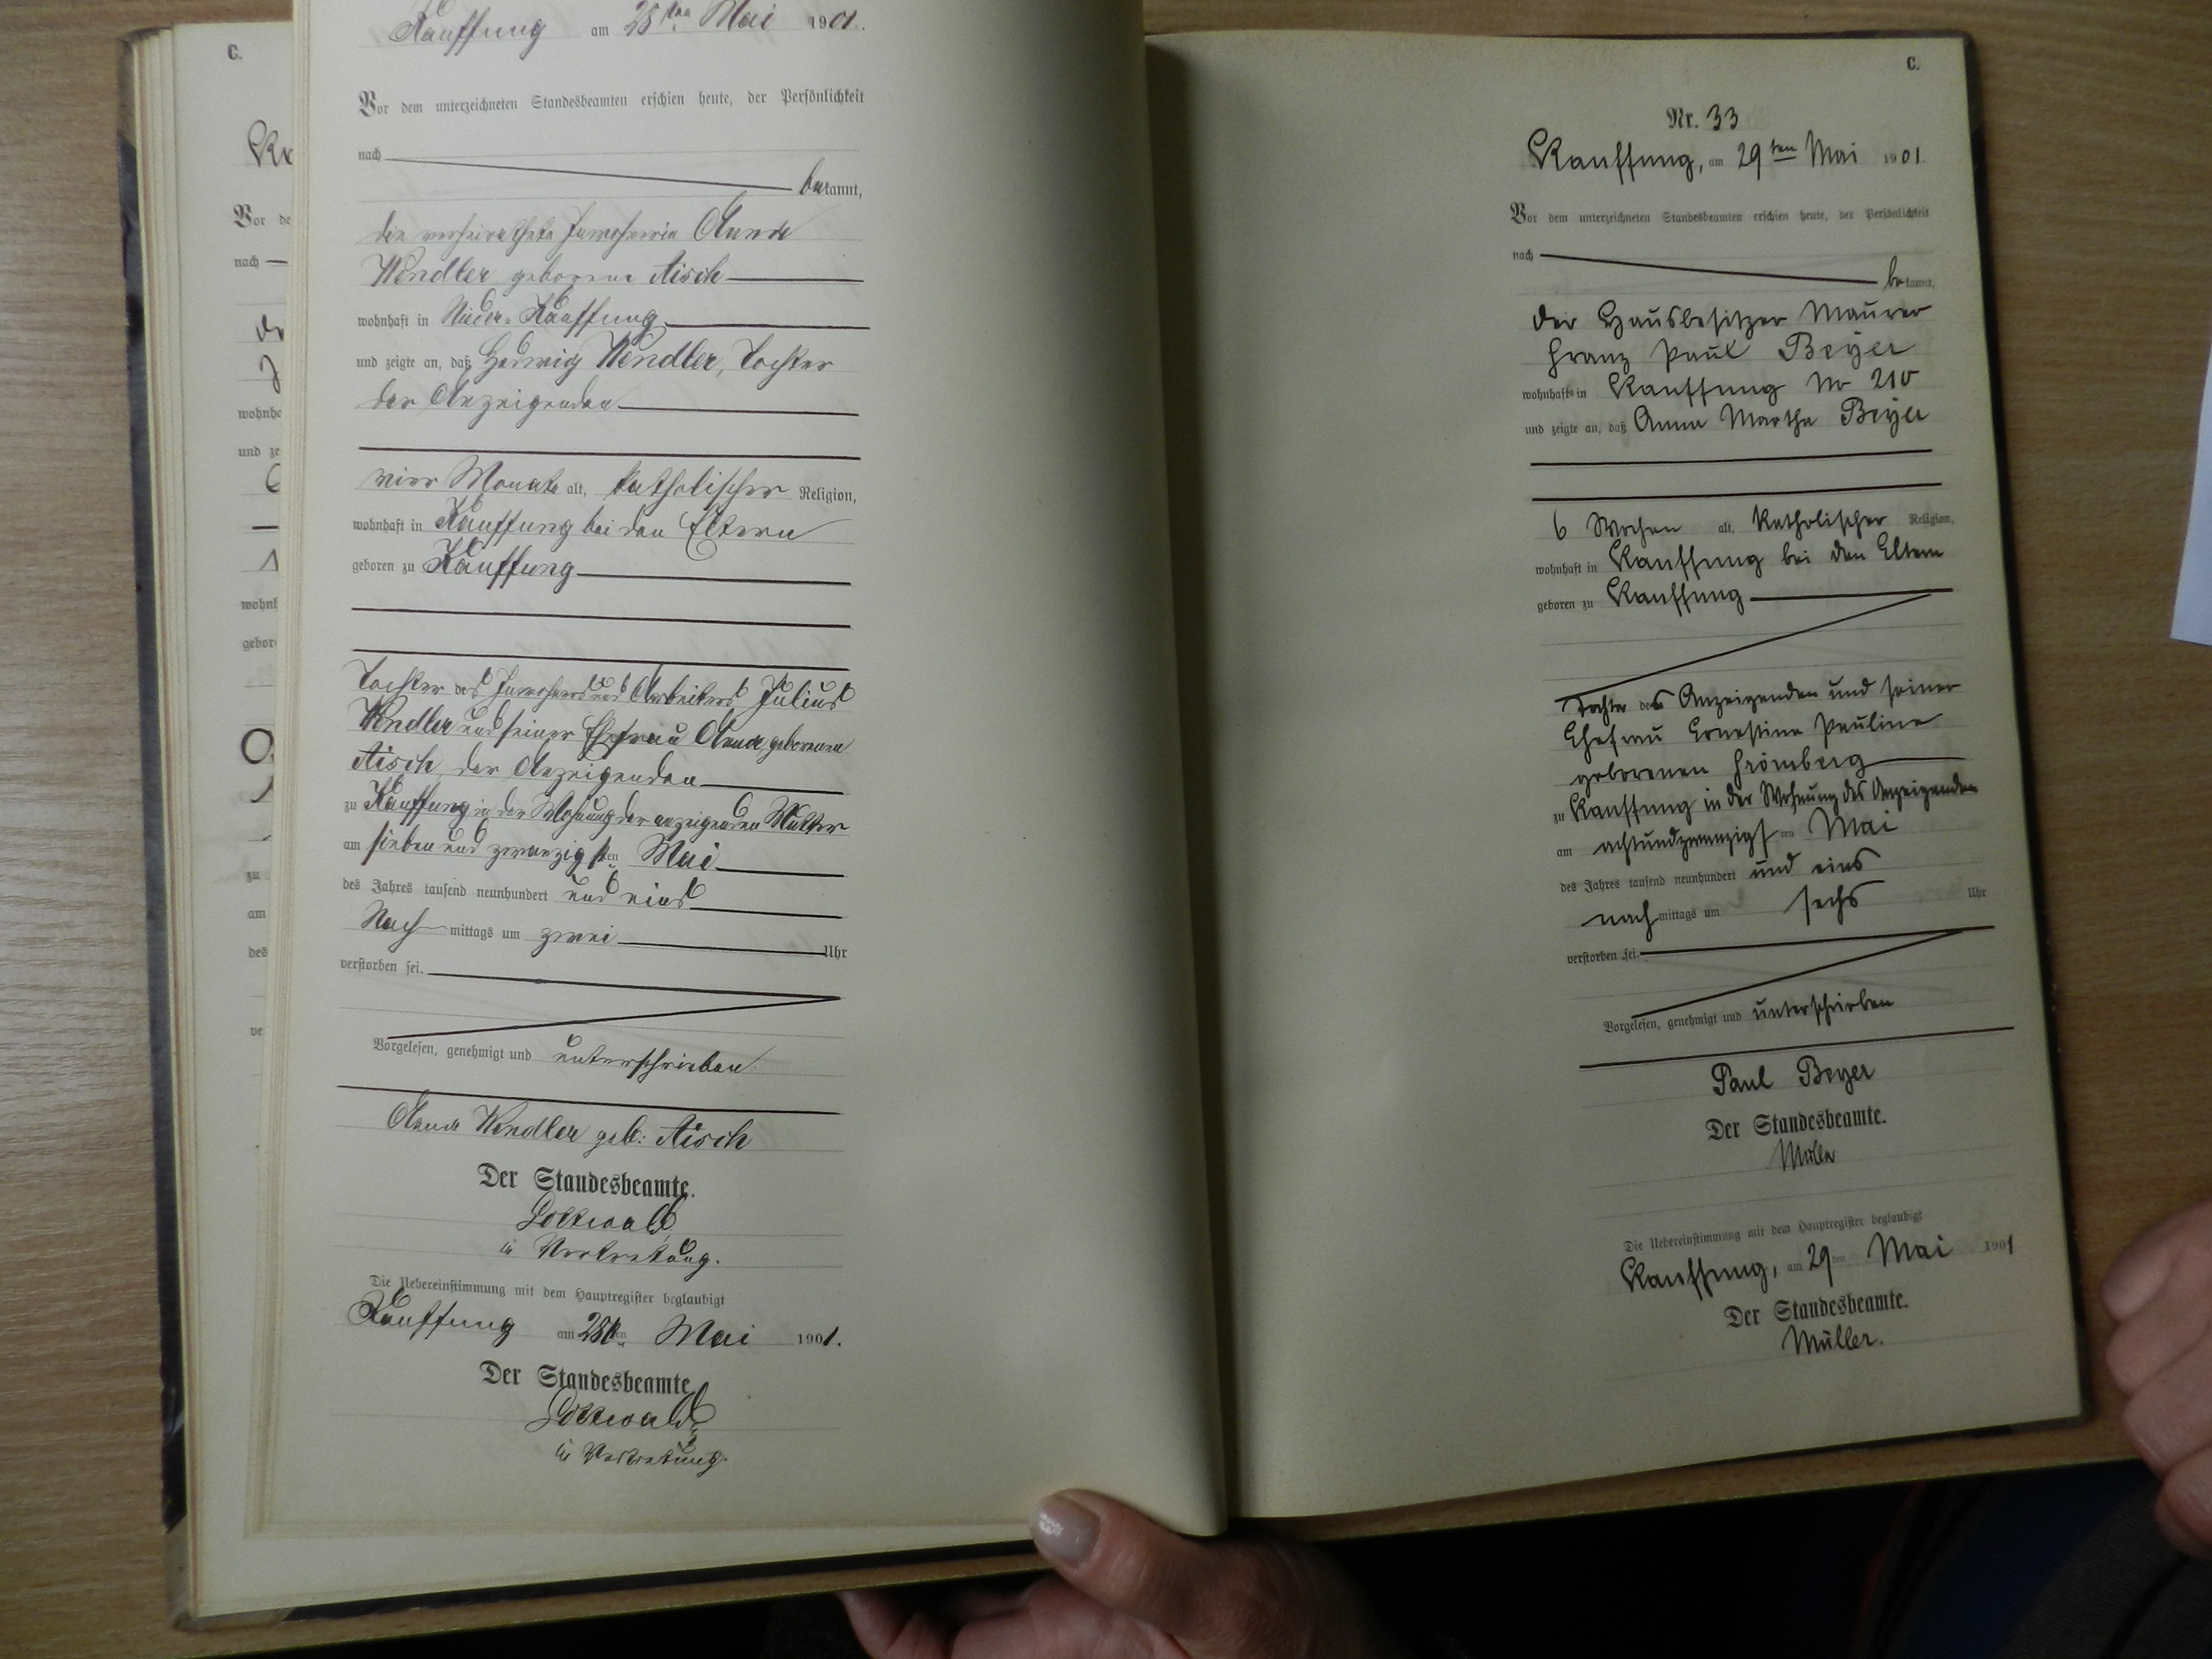 C.
Kauffung am 28ten Mai 1901.
Vor dem unterzeichneten Standesbeamten erschien heute, der Persönlichkeit
nach
bekannt,
die verheirathete Inwohnerin Anna
Wendler geborene Aisch
wohnhaft in Nieder-Kauffung
und zeigte an, daß Hedwig Wendler, Tochter
der Anzeigenden
vier Monate alt, katholischer Religion,
wohnhaft in Kauffung bei den Eltern
geboren zu Kauffung
Tochter des Inwohners und Arbeiters Julius
Wendler und seiner Ehefrau Anna, geborenen
Aisch, der Anzeigenden
zu Kauffung in der Wohnung der anzeigenden Mutter
am sieben und zwanzigsten Mai
des Jahres tausend neunhundert und eins
Nach mittags um zwei Uhr
verstorben sei.
Vorgelesen, genehmigt und unterschrieben.
Anna Wendler geb: Aisch
Der Standesbeamte.
in Vertretung.
Die Uebereinstimmung mit dem Hauptregister beglaubigt
Kauffung am 28ten Mai 1901.
Der Standesbeamte
in Vertretung.
C.
Nr. 33
Kauffung, am 29ten Mai 1901
Vor dem unterzeichneten Standesbeamten erschien heute, der Persönlichkeit
nach
bekannt,
der Hausbesitzer Maurer
Franz Paul Beyer
wohnhaft in Kauffung No 210
und zeigte an, daß Anna Martha Beyer
6 Wochen alt, katholischer Religion,
wohnhaft in Kauffung bei den Eltern
geboren zu Kauffung
Tochter des Anzeigenden und seiner
Ehefrau Ernestine Pauline
geborenen Frömberg
zu Kauffung in der Wohnung des Anzeigenden
am achtundzwanzigsten Mai
des Jahres tausend neunhundert und eins
nach mittags um sechs Uhr
verstorben sei.
Vorgelesen, genehmigt und unterschrieben
Paul Beyer
Der Standesbeamte.
Müller
Die Uebereinstimmung mit dem Hauptregister beglaubigt
Kauffung, am 29ten Mai 1901
Der Standesbeamte.
Müller.